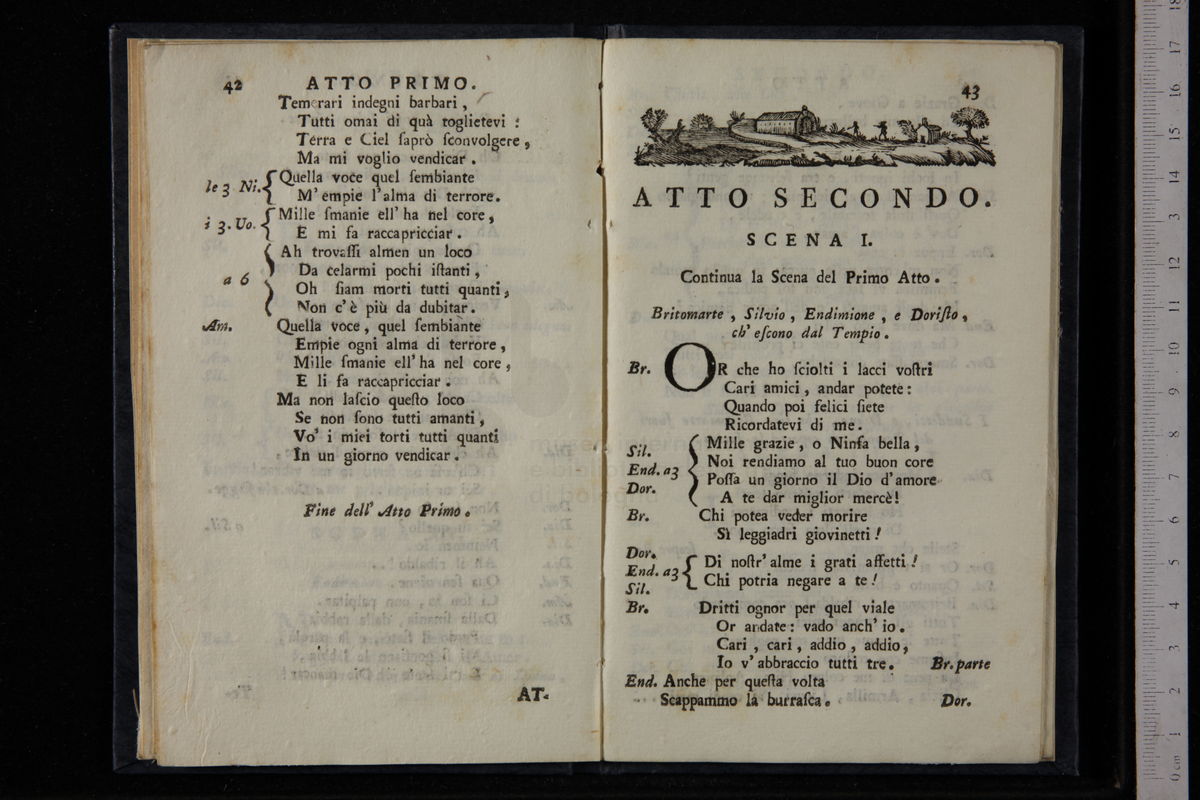 42 ATTO PRIMO.
Temerari indegni barbari,
Tutti omai di quà toglietevi :
Terra e Ciel ſaprò ſconvolgere,
Ma mi voglio vendicar.
le 3 Ni. Quella voce quel ſembiante
M' empie l'alma di terrore.
i 3. Uo. Mille ſmanie ell' ha nel core,
E mi fa raccapricciar.
a 6 Ah trovaſſi almen un loco
Da celarmi pochi iſtanti,
Oh ſiam morti tutti quanti,
Non c'è più da dubitar.
Am. Quella voce, quel ſembiante
Empie ogni alma di terrore,
Mille ſmanie ell' ha nel core,
E li fa raccapricciar.
Ma non laſcio queſto loco
Se non ſono tutti amanti,
Vo' i miei torti tutti quanti
In un giorno vendicar.
Fine dell' Atto Primo.
AT-
43
ATTO SECONDO.
SCENA I.
Continua la Scena del Primo Atto.
Britomarte, Silvio, Endimione, e Doriſto,
ch' eſcono dal Tempio.
Br. OR che ho ſciolti i lacci voſtri
Cari amici, andar potete:
Quando poi felici ſiete
Ricordatevi di me.
Sil. Mille grazie, o Ninfa bella,
End. a3 Noi rendiamo al tuo buon core
Dor. Poſſa un giorno il Dio d'amore
A te dar miglior mercè!
Br. Chi potea veder morire
Sì leggiadri giovinetti!
Dor.
End. a3 Di noſtr' alme i grati affetti!
Sil. Chi potria negare a te!
Br. Dritti ognor per quel viale
Or andate: vado anch' io.
Cari, cari, addio, addio,
Io v' abbraccio tutti tre. Br. parte
End. Anche per queſta volta
Scappammo la burraſca. Dor.